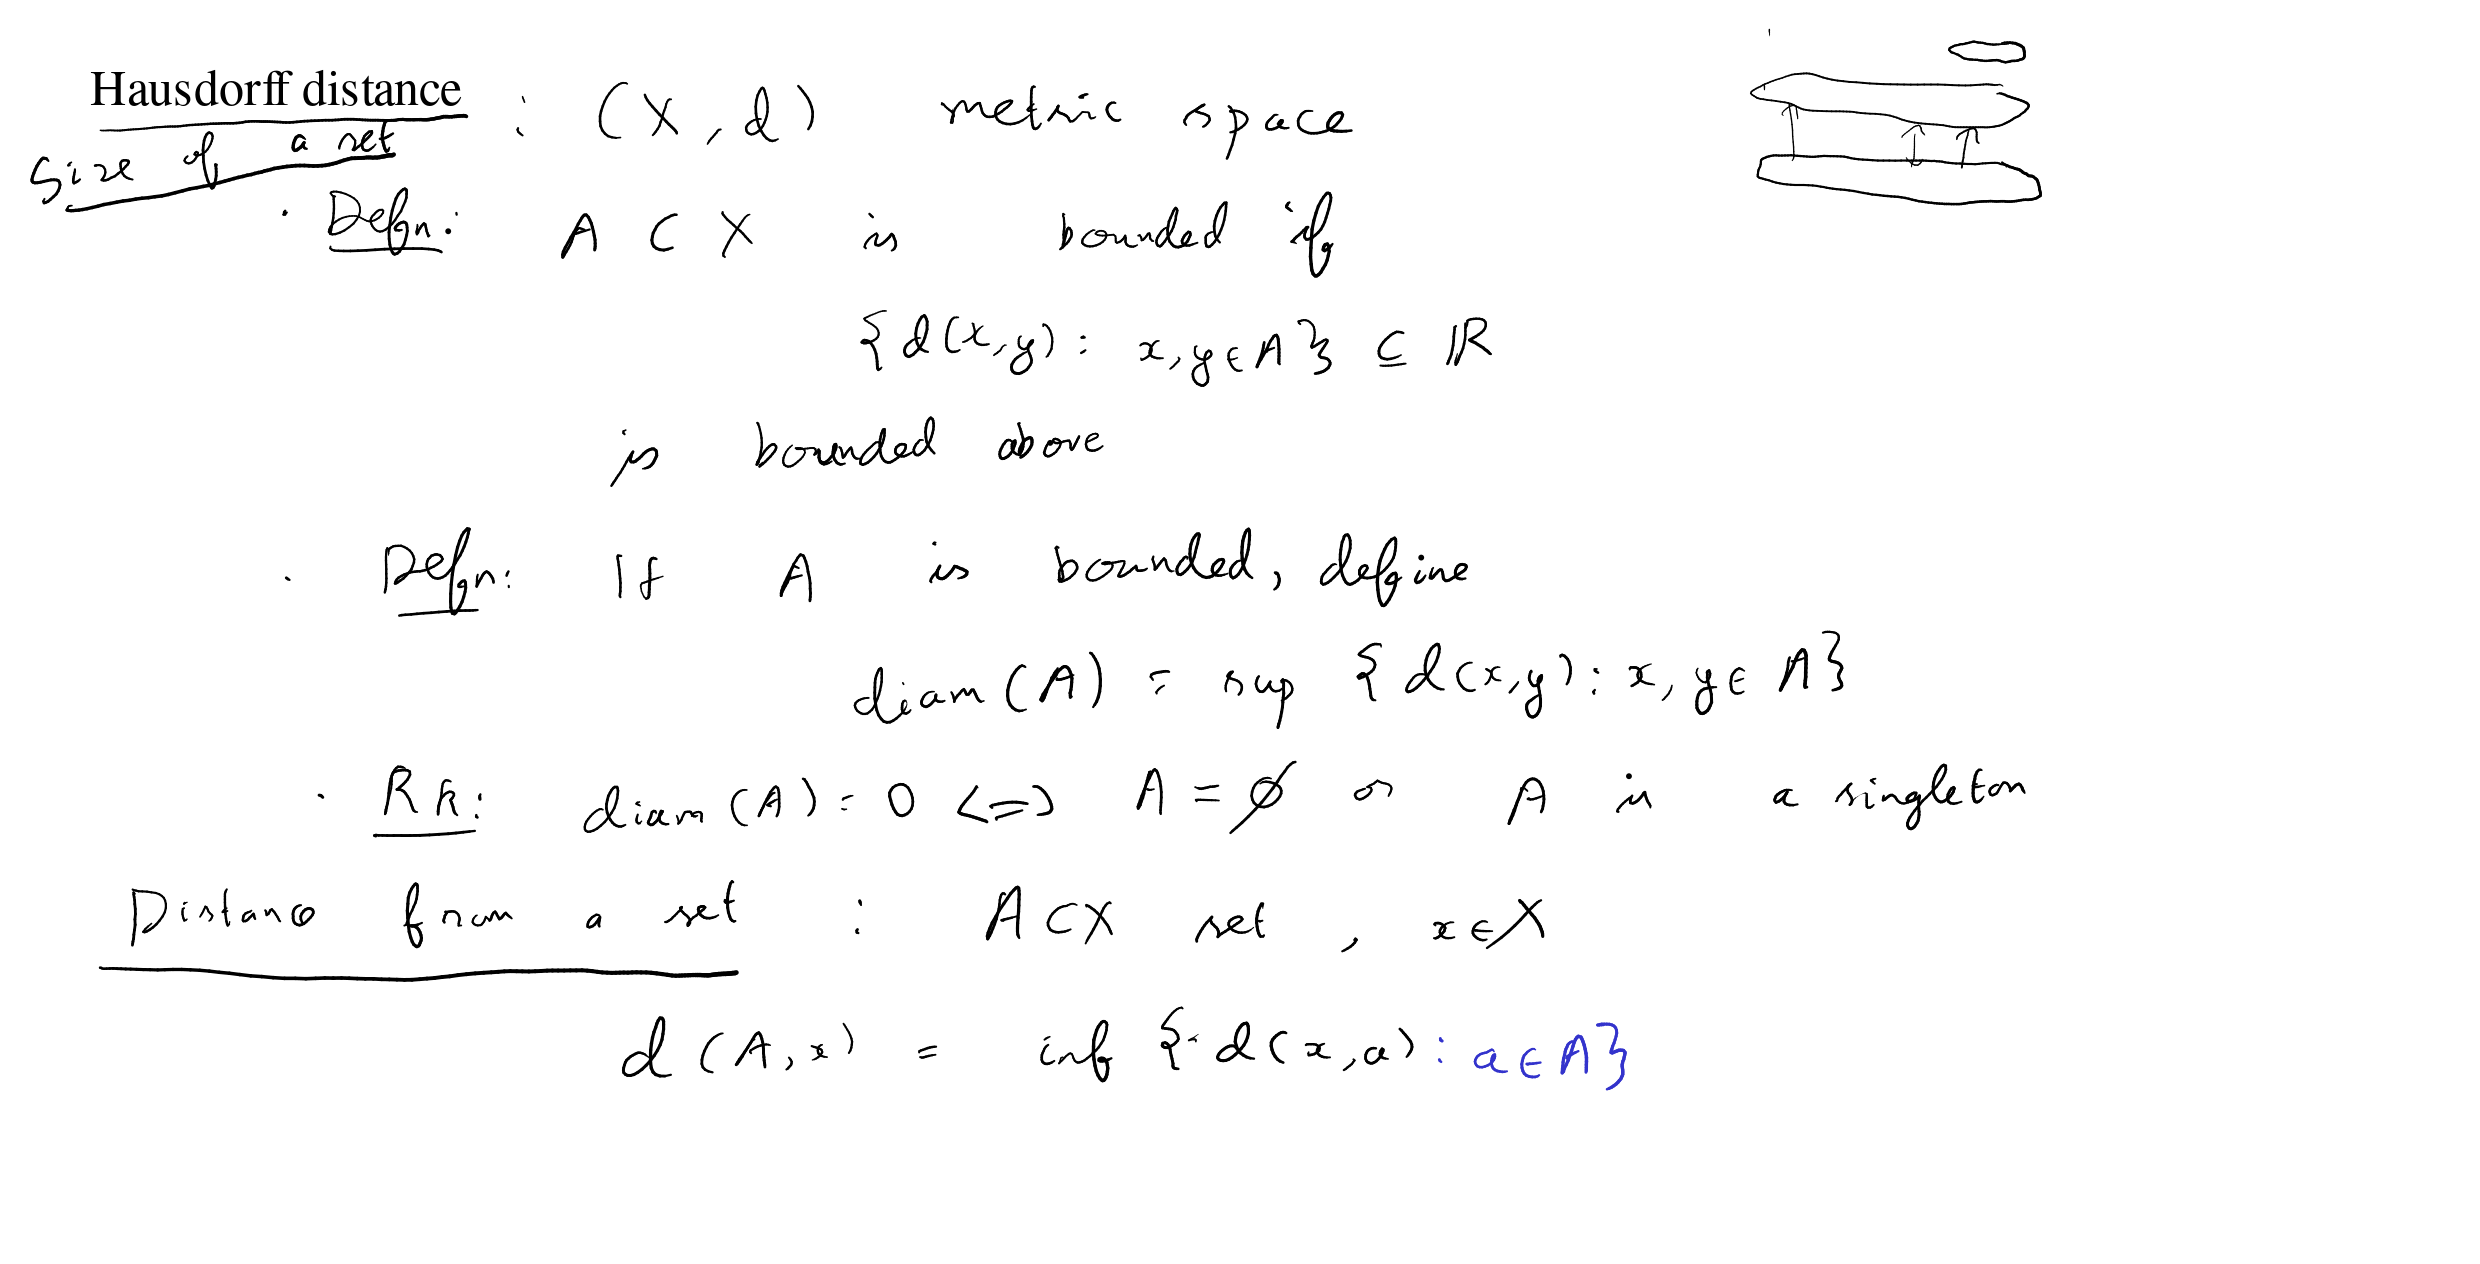 Hausdorff distance : (X, d) metric space
Size of a set
· Defn: A ⊂ X is bounded if
{d(x,y): x,y∈A} ⊆ ℝ
is bounded above
· Defn: If A is bounded, define
diam(A) = sup {d(x,y): x, y∈ A}
· Rk: diam(A) = 0 <=> A = ∅ or A is a singleton
Distance from a set : A⊂X set, x∈X
d(A,x) = inf {d(x,a): a∈A}